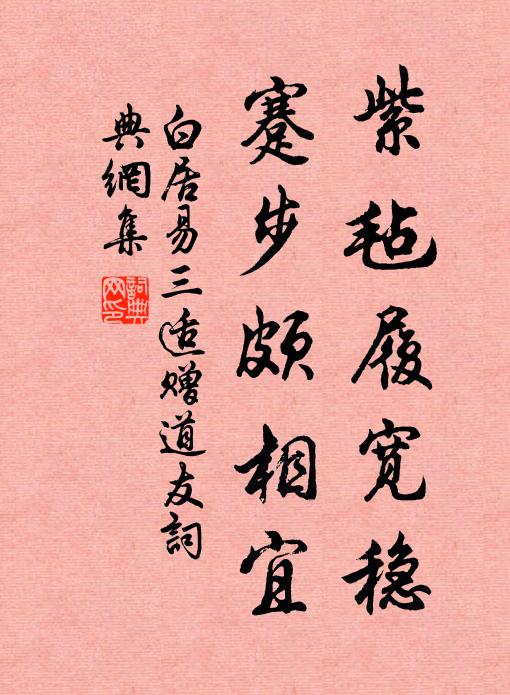 紫毡履宽稳
蹇步颇相宜
白居易三适赠道友詞
典網集
詞典网印